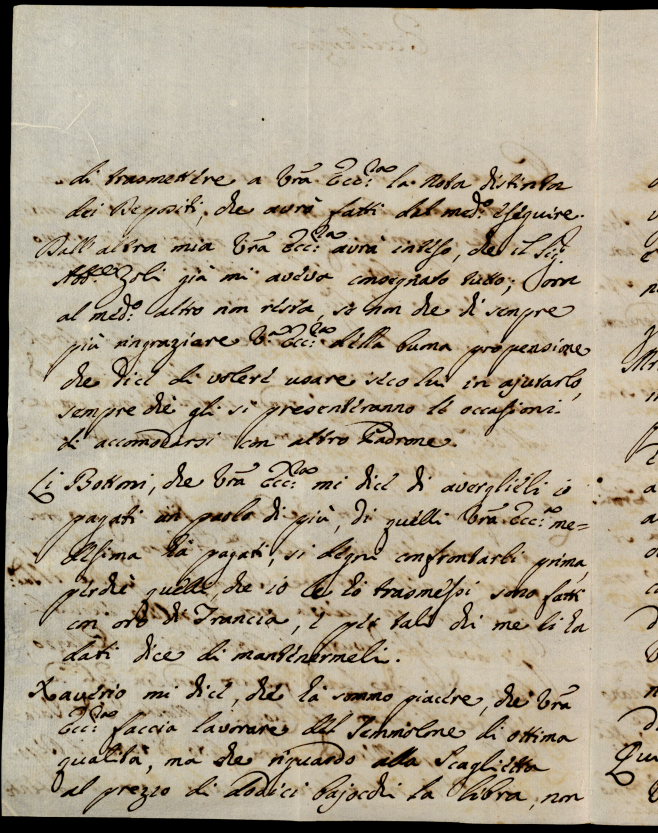 di trasmettere a Vrã Ecc:za la Nota distinta
dei Depositi, che avrà fatti dal med:o eseguire.
Dall'altra mia Vrã Ecc:za avrà inteso, che il Sig:
Abb:e Zoli già mi aveva consegnato tutto; Ora
al med:o altro non resta, se non che di sempre
più ringraziare V:a Ecc:za della buona propensione
che dice di volere usare seco lui in ajutarlo,
sempre che gli si presenteranno le occasioni
di accomodarsi con altro Padrone.
Li Bottoni, che Vrã Ecc:za mi dice di averglieli io
pagati un paolo di più, di quelli Vrã Ecc:za me=
desima hà pagati, si degni confrontarli prima,
perchè quelli, che io le hò trasmessi sono fatti
con oro di Francia, e per tali chi me li hà
dati dice di mantenermeli.
Xaverio mi dice, che hà sommo piacere, che Vrã
Ecc:za faccia lavorare del Semolone di ottima
qualità, ma che riguardo alla Scaglietta
al prezzo di dodici bajocchi la libra, non